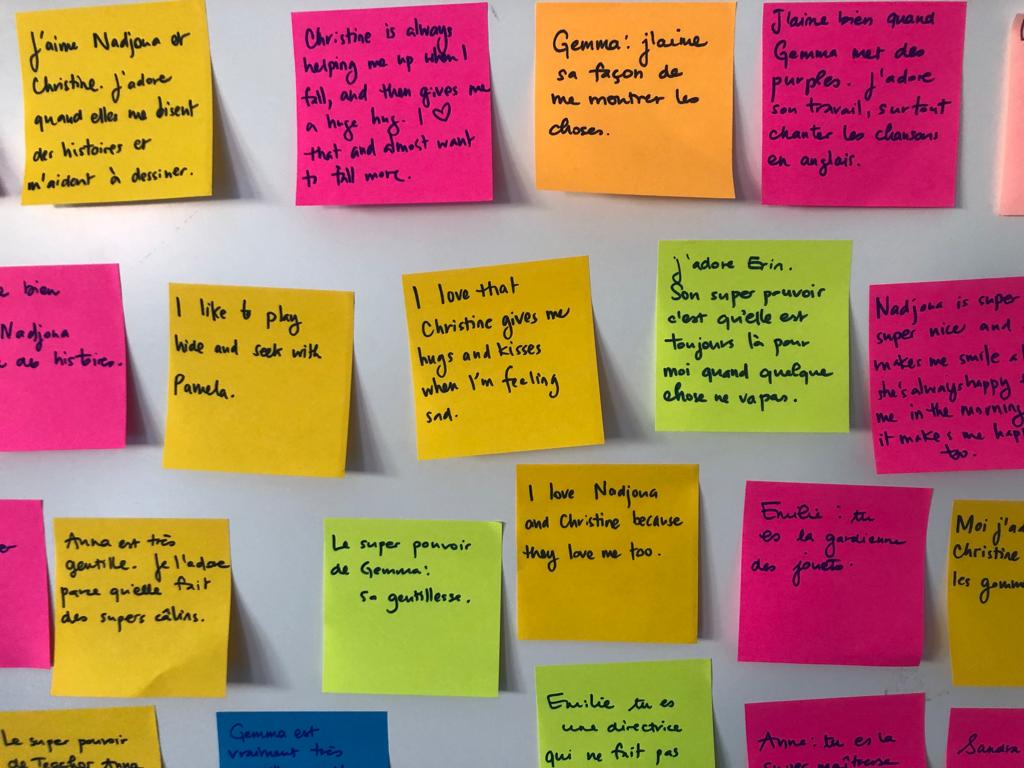 J'aime Nadjoua et
Christine. J'adore
quand elles me disent
des histoires et
m'aident à dessiner.
Christine is always
helping me up when I
fall, and then gives me
a huge hug. I ♡
that and almost want
to fall more.
Gemma: j'aime
sa façon de
me montrer les
choses.
J'aime bien quand
Gemma met des
purples. J'adore
son travail, surtout
chanter les chansons
en anglais.
bien
Nadjoua
histoires.
I like to play
hide and seek with
Pamela.
I love that
Christine gives me
hugs and kisses
when I'm feeling
sad.
j'adore Erin.
Son super pouvoir
c'est qu'elle est
toujours là pour
moi quand quelque
chose ne va pas.
Nadjoua is super
super nice and
makes me smile
she's always happy
me in the morning
it makes me
too.
Anna est très
gentille. Je l'adore
parce qu'elle fait
des supers câlins.
Le super pouvoir
de Gemma:
sa gentillesse.
I love Nadjoua
and Christine because
they love me too.
Emilie: tu
es la gardienne
des jouets.
Moi j'ad
Christine
les gomm
Le super pouvoir
de Teacher Anna
Gemma est
vraiment très
Emilie tu es
une directrice
qui ne fait pas
Anna: tu es la
super maîtresse
Sandra